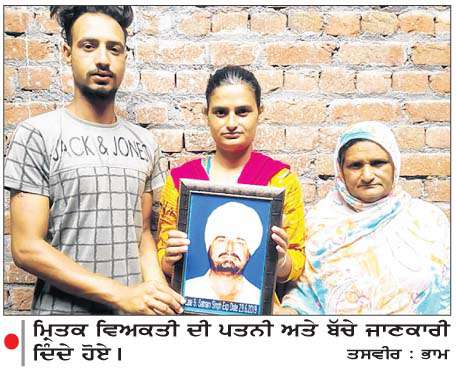 JACK & JONES
Late S. Satnam Singh Exp Date 29.6.2019
ਮ੍ਰਿਤਕ ਵਿਅਕਤੀ ਦੀ ਪਤਨੀ ਅਤੇ ਬੱਚੇ ਜਾਣਕਾਰੀ
ਦਿੰਦੇ ਹੋਏ। ਤਸਵੀਰ : ਭਾਮ